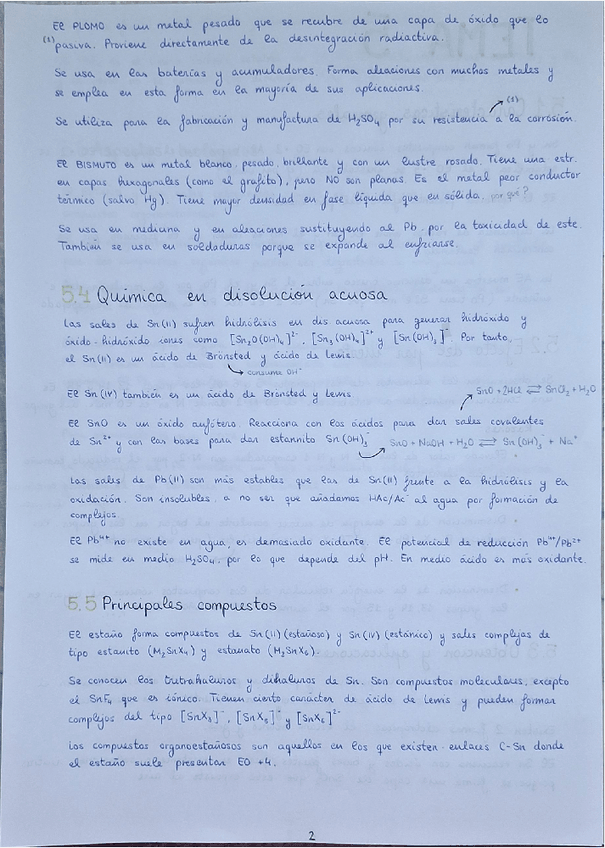 El PLOMO es un metal pesado que se recubre de una capa de óxido que lo
(1) pasiva. Proviene directamente de la desintegración radiactiva.
Se usa en las baterías y acumuladores. Forma aleaciones con muchos metales y
se emplea en esta forma en la mayoría de sus aplicaciones.
(1)
Se utiliza para la fabricación y manufactura de H₂SO₄ por su resistencia a la corrosión.
El BISMUTO es un metal blanco, pesado, brillante y con un lustre rosado. Tiene una estr.
en capas hexagonales (como el grafito), pero NO son planas. Es el metal peor conductor
térmico (salvo Hg). Tiene mayor densidad en fase líquida que en sólida. por qué?
Se usa en medicina y en aleaciones sustituyendo al Pb, por la toxicidad de este.
También se usa en soldaduras porque se expande al enfriarse.
5.4 Química en disolución acuosa
Las sales de Sn(II) sufren hidrólisis en dis acuosa para generar hidróxido y
óxido-hidróxido iones como [Sn₂O(OH)₄]²⁻, [Sn₃(OH)₄]²⁺ y [Sn(OH)₃]⁻. Por tanto,
el Sn(II) es un ácido de Brönsted y ácido de Lewis.
consume OH⁻
El Sn(IV) también es un ácido de Brönsted y Lewis.
SnO + 2HCl ⇄ SnCl₂ + H₂O
El SnO es un óxido anfótero. Reacciona con los ácidos para dar sales covalentes
de Sn²⁺ y con las bases para dar estannito Sn(OH)₃⁻
SnO + NaOH + H₂O ⇄ Sn(OH)₃⁻ + Na⁺
Las sales de Pb(II) son más estables que las de Sn(II) frente a la hidrólisis y la
oxidación. Son insolubles, a no ser que añadamos HAc/Ac⁻ al agua por formación de
complejos.
El Pb⁴⁺ no existe en agua, es demasiado oxidante. El potencial de reducción Pb⁴⁺/Pb²⁺
se mide en medio H₂SO₄, por lo que depende del pH. En medio ácido es más oxidante.
5.5 Principales compuestos
El estaño forma compuestos de Sn(II) (estañoso) y Sn(IV) (estánico) y sales complejas de
tipo estanito (M₂SnX₄) y estanato (M₂SnX₆).
Se conocen los tetrahaluros y dihaluros de Sn. Son compuestos moleculares, excepto
el SnF₄ que es iónico. Tienen cierto carácter de ácido de Lewis y pueden formar
complejos del tipo [SnX₃]⁻, [SnX₅]⁻ y [SnX₆]²⁻
Los compuestos organoestañosos son aquellos en los que existen enlaces C-Sn donde
el estaño suele presentar EO +4.
2